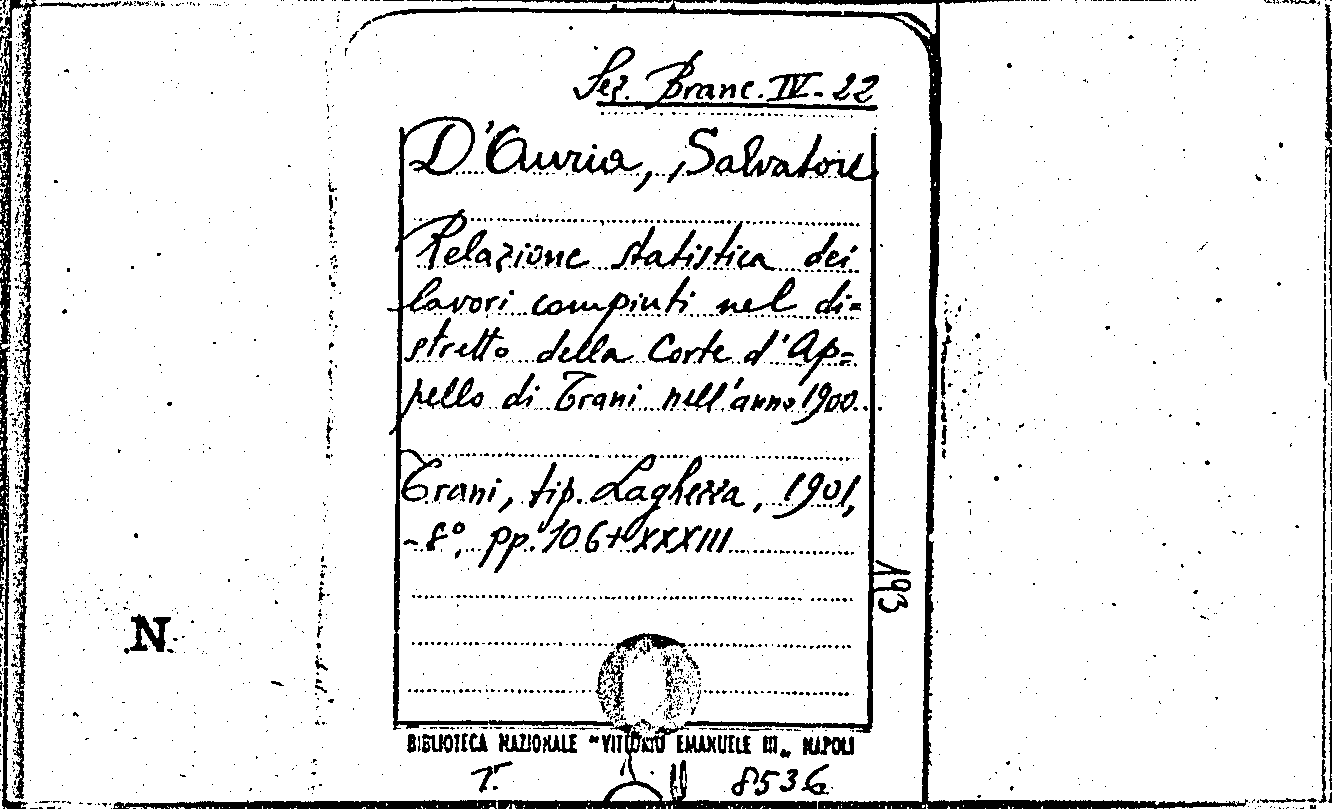 Sez. Branc. IV - 22
D'Auria, Salvatore
Relazione statistica dei
lavori compiuti nel di=
stretto della Corte d'Ap=
pello di Trani nell'anno 1900.
Trani, tip. Laghezza, 1901,
-8°, pp. 106+XXXIII
193
N
BIBLIOTECA NAZIONALE "VITTORIO EMANUELE III„ NAPOLI
T. 8536